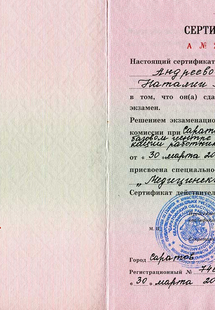 СЕРТИ
А №
Настоящий сертификат
Андреево
Наталии
в том, что он(а) сда
экзамен.
Решением экзаменацион
комиссии при Сарат
базовом центре
кации работник
от « 30 » марта 20
присвоена специально
„Медицинск
Сертификат действител
М. П.
Город Саратов
Регистрационный № 746
« 30 » марта 20